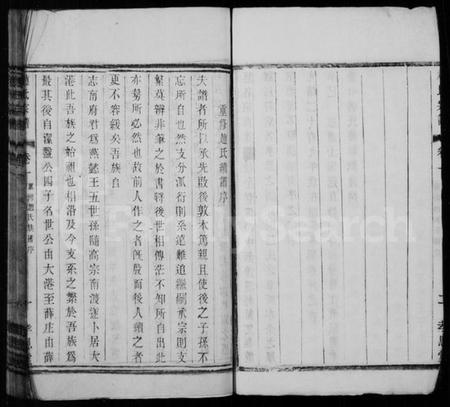 重修趙氏續譜序
夫譜者所以承先啟後敦本篤親且使後之子孫不
忘所自也然支分派衍則系遠難追繼嗣承宗則支
繁莫辨非筆之於書將後世相傳茫不知所自出此
亦勢所必然也故前人作之者既殷而後人續之者
更不容緩矣吾族自
志南府君為燕懿王五世孫隨高宗南渡遷卜居大
港此吾族之始祖也相沿及今支系之繁於吾族為
最其後自潔盤公四子名世公由大港至薛庄由薛
卷一
趙氏族譜序
一
FamilySearch